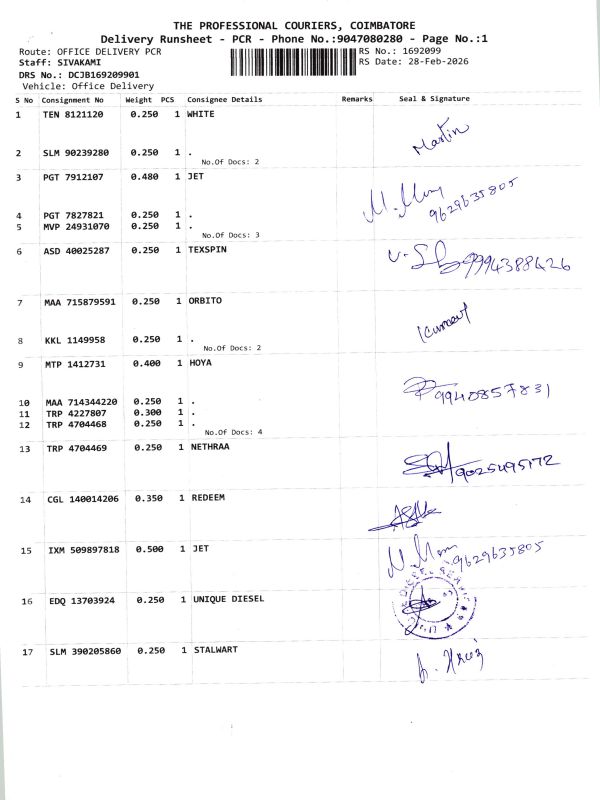 THE PROFESSIONAL COURIERS, COIMBATORE
Delivery Runsheet - PCR - Phone No.:9047080280 - Page No.:1
Route: OFFICE DELIVERY PCR RS No.: 1692099
Staff: SIVAKAMI RS Date: 28-Feb-2026
DRS No.: DCJB169209901
Vehicle: Office Delivery
S No Consignment No Weight PCS Consignee Details Remarks Seal & Signature
1 TEN 8121120 0.250 1 WHITE
Martin
2 SLM 90239280 0.250 1 .
No.Of Docs: 2
3 PGT 7912107 0.480 1 JET
9629635805
4 PGT 7827821 0.250 1 .
5 MVP 24931070 0.250 1 .
No.Of Docs: 3
6 ASD 40025287 0.250 1 TEXSPIN
9994388426
7 MAA 715879591 0.250 1 ORBITO
8 KKL 1149958 0.250 1 .
No.Of Docs: 2
9 MTP 1412731 0.400 1 HOYA
9940857831
10 MAA 714344220 0.250 1 .
11 TRP 4227807 0.300 1 .
12 TRP 4704468 0.250 1 .
No.Of Docs: 4
13 TRP 4704469 0.250 1 NETHRAA
9025495172
14 CGL 140014206 0.350 1 REDEEM
15 IXM 509897818 0.500 1 JET
9629635805
16 EDQ 13703924 0.250 1 UNIQUE DIESEL
17 SLM 390205860 0.250 1 STALWART